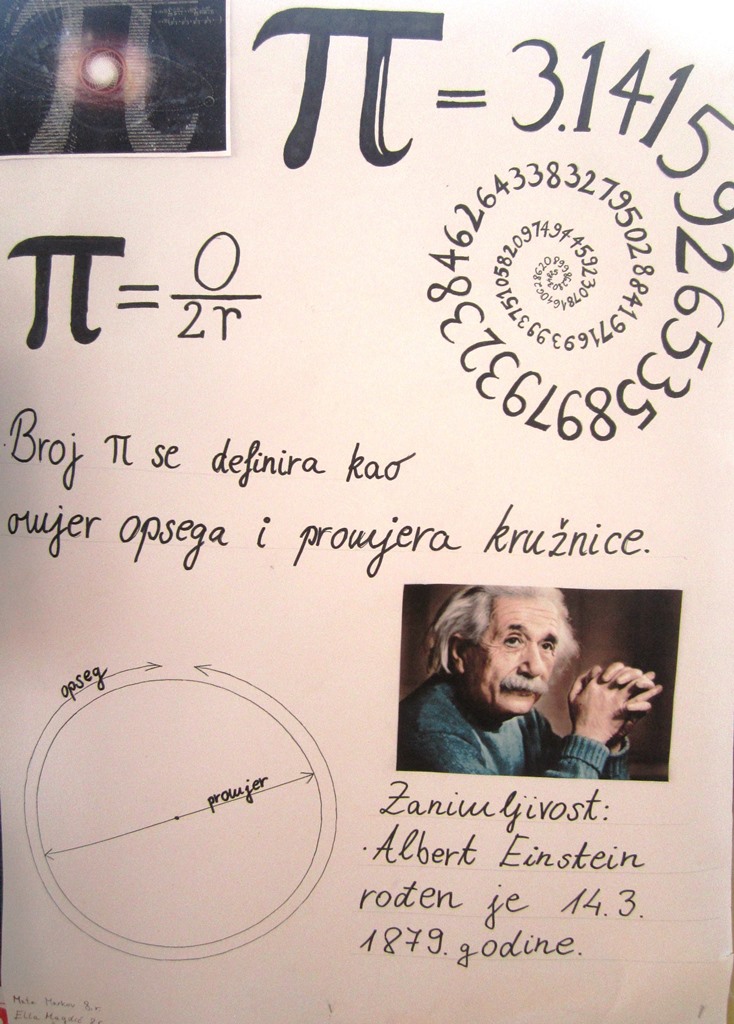 π = 3.14159265358979323846264338327950288419716939937510582097494459230781640628620899862
π = O
2r
Broj π se definira kao
omjer opsega i promjera kružnice.
opseg
promjer
Zanimljivost:
· Albert Einstein
rođen je 14. 3.
1879. godine.
Markov 8.r
Ella Magdić 8.r